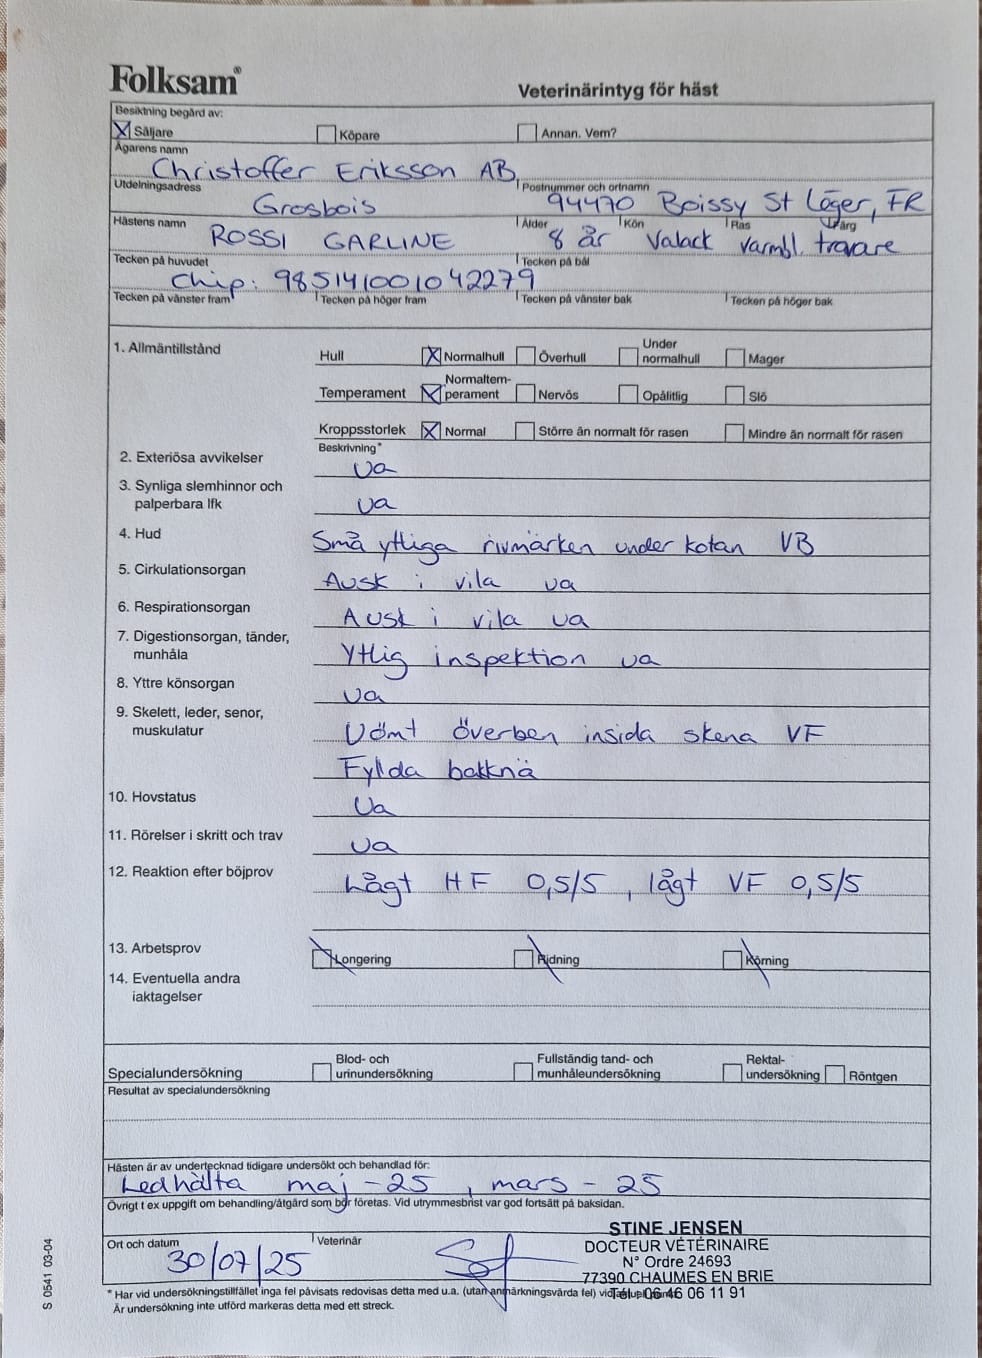 Folksam®
Veterinärintyg för häst
Besiktning begärd av:
X Säljare Köpare Annan. Vem?
Ägarens namn
Christoffer Eriksson AB
Utdelningsadress Postnummer och ortnamn
Grosbois 94470 Boissy St Léger, FR
Hästens namn Ålder Kön Ras Färg
ROSSI GARLINE 8 år Valack varmbl. travare
Tecken på huvudet Tecken på bål
Chip: 985141001042279
Tecken på vänster fram Tecken på höger fram Tecken på vänster bak Tecken på höger bak
1. Allmäntillstånd
Hull X Normalhull Överhull Under normalhull Mager
Temperament X Normaltem-perament Nervös Opålitlig Slö
Kroppsstorlek X Normal Större än normalt för rasen Mindre än normalt för rasen
Beskrivning*
2. Exteriösa avvikelser ua
3. Synliga slemhinnor och
palperbara lfk ua
4. Hud Små ytliga rivmärken under kotan VB
5. Cirkulationsorgan Ausk i vila ua
6. Respirationsorgan Ausk i vila ua
7. Digestionsorgan, tänder,
munhåla Ytlig inspektion ua
8. Yttre könsorgan ua
9. Skelett, leder, senor,
muskulatur Uömt överben insida skena VF
Fyllda bakknä
10. Hovstatus Ua
11. Rörelser i skritt och trav Ua
12. Reaktion efter böjprov Lågt HF 0,5/5, lågt VF 0,5/5
13. Arbetsprov Longering Ridning Körning
14. Eventuella andra
iaktagelser
Specialundersökning Blod- och urinundersökning Fullständig tand- och munhåleundersökning Rektal-undersökning Röntgen
Resultat av specialundersökning
Hästen är av undertecknad tidigare undersökt och behandlad för:
Ledhälta maj -25, mars -25
Övrigt t ex uppgift om behandling/åtgärd som bör företas. Vid utrymmesbrist var god fortsätt på baksidan.
Ort och datum Veterinär
30/07/25
STINE JENSEN
DOCTEUR VÉTÉRINAIRE
N° Ordre 24693
77390 CHAUMES EN BRIE
Tél. 06 46 06 11 91
* Har vid undersökningstillfället inga fel påvisats redovisas detta med u.a. (utan anmärkningsvärda fel) vid
Är undersökning inte utförd markeras detta med ett streck.
S 0541 03-04